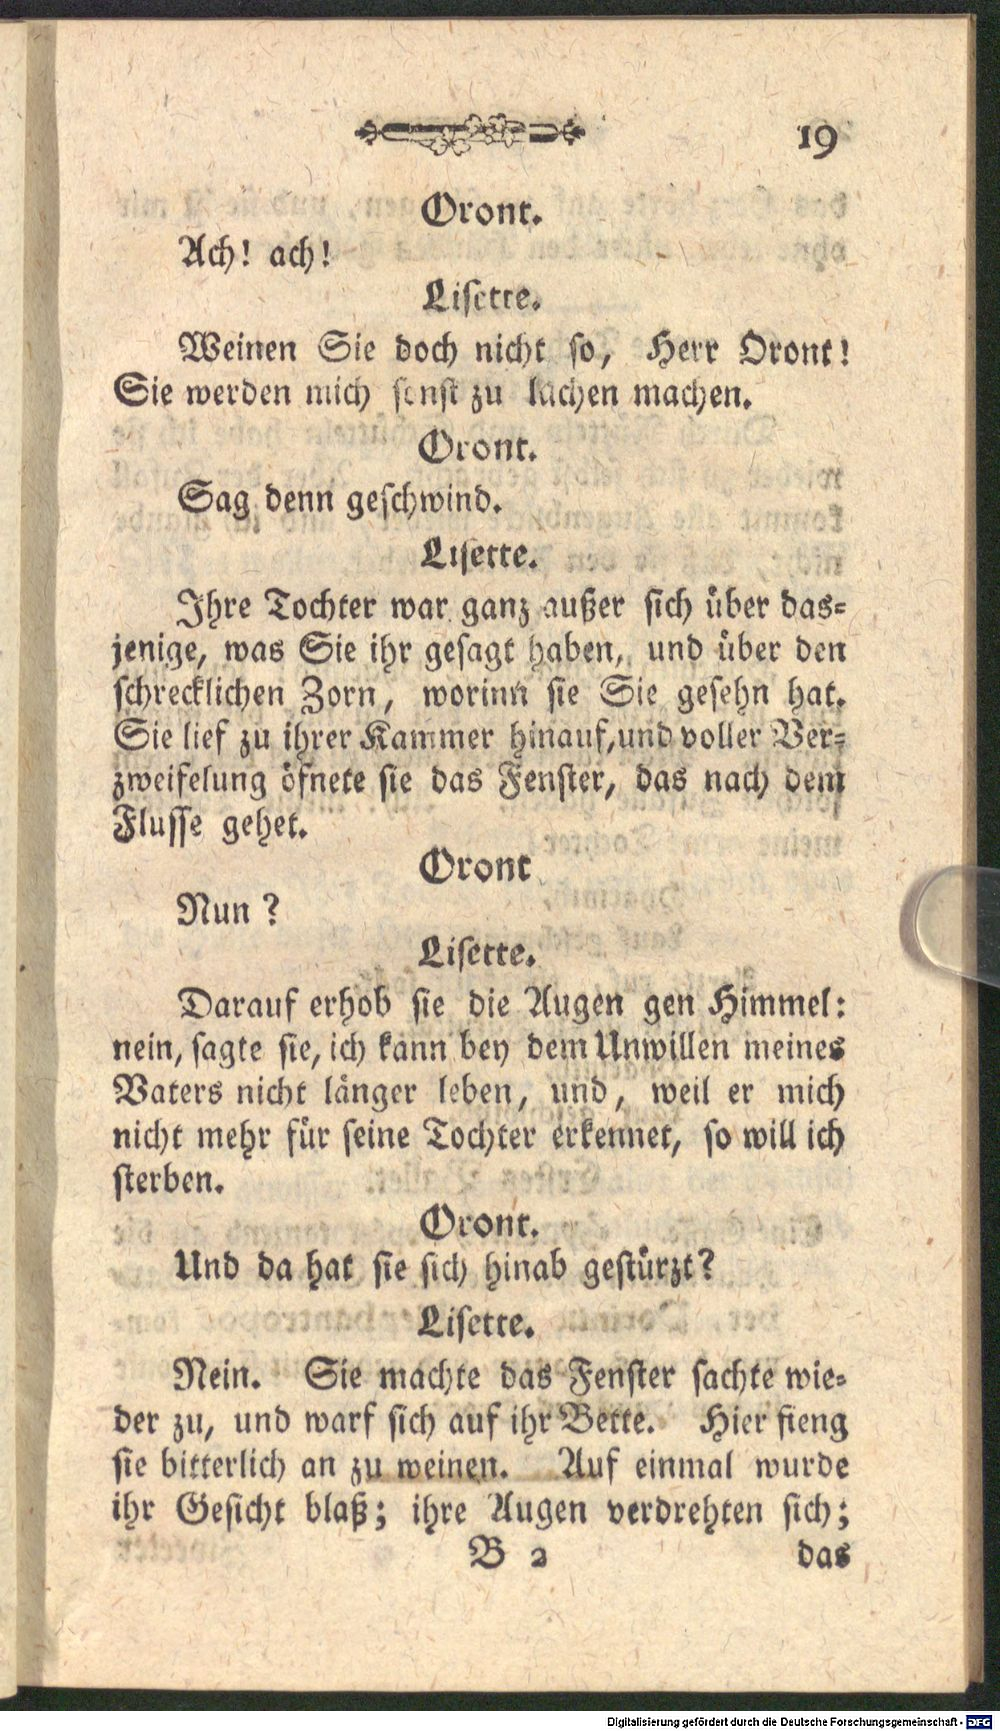 19
Oront.
Ach! ach!
Lisette.
Weinen Sie doch nicht so, Herr Oront!
Sie werden mich sonst zu lachen machen.
Oront.
Sag denn geschwind.
Lisette.
Ihre Tochter war ganz außer sich über das-
jenige, was Sie ihr gesagt haben, und über den
schrecklichen Zorn, worinn sie Sie gesehn hat.
Sie lief zu ihrer Kammer hinauf, und voller Ver-
zweifelung öfnete sie das Fenster, das nach dem
Flusse gehet.
Oront
Nun?
Lisette.
Darauf erhob sie die Augen gen Himmel:
nein, sagte sie, ich kann bey dem Unwillen meines
Vaters nicht länger leben, und, weil er mich
nicht mehr für seine Tochter erkennet, so will ich
sterben.
Oront.
Und da hat sie sich hinab gestürzt?
Lisette.
Nein. Sie machte das Fenster sachte wie-
der zu, und warf sich auf ihr Bette. Hier fieng
sie bitterlich an zu weinen. Auf einmal wurde
ihr Gesicht blaß; ihre Augen verdrehten sich;
B 2 das
Digitalisierung gefördert durch die Deutsche Forschungsgemeinschaft - DFG